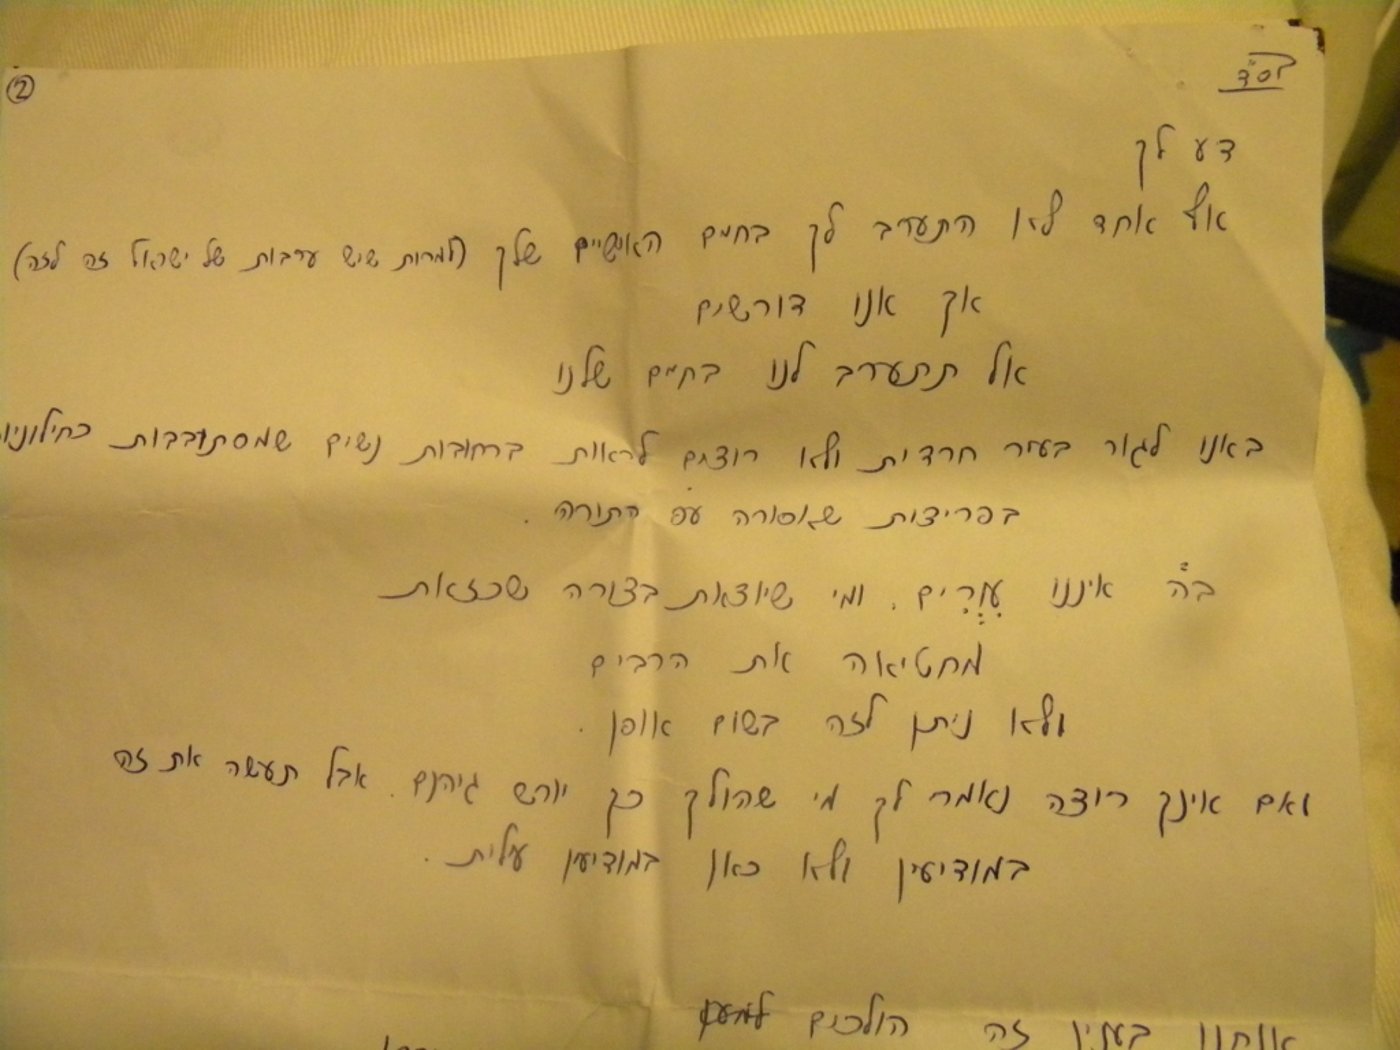 בס"ד
②
דע לך
אף אחד לא התערב לך בחיים האישיים שלך (למרות שיש ערבות של ישראל זה לזה)
אך אנו דורשים
אל תתערב לנו בחיים שלנו
באנו לגור בעיר חרדית ולא רוצים לראות ברחובות נשים שמסתובבות כחילוניות
בפריצות שאסורה עפ התורה.
ב"ה איננו עִוְרִים. ומי שיוצאת בצורה שכזאת
מחטיאה את הרבים
ולא ניתן לזה בשום אופן.
ואם אינך רוצה נאמר לך מי שהולך כך יורש גיהנם. אבל תעשה את זה
במודיעין ולא כאן במודיעין עילית.
אנחנו בענין זה הולכים